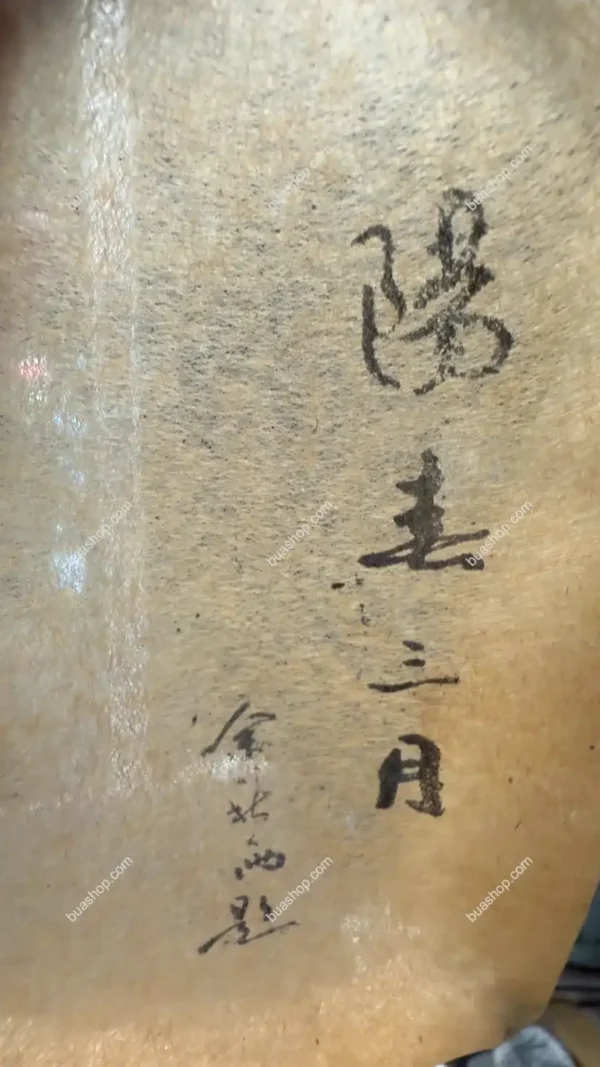 陽春三月
題
buashop.com
buashop.com
buashop.com
buashop.com
buashop.com
buashop.com
buashop.com
buashop.com
buashop.com